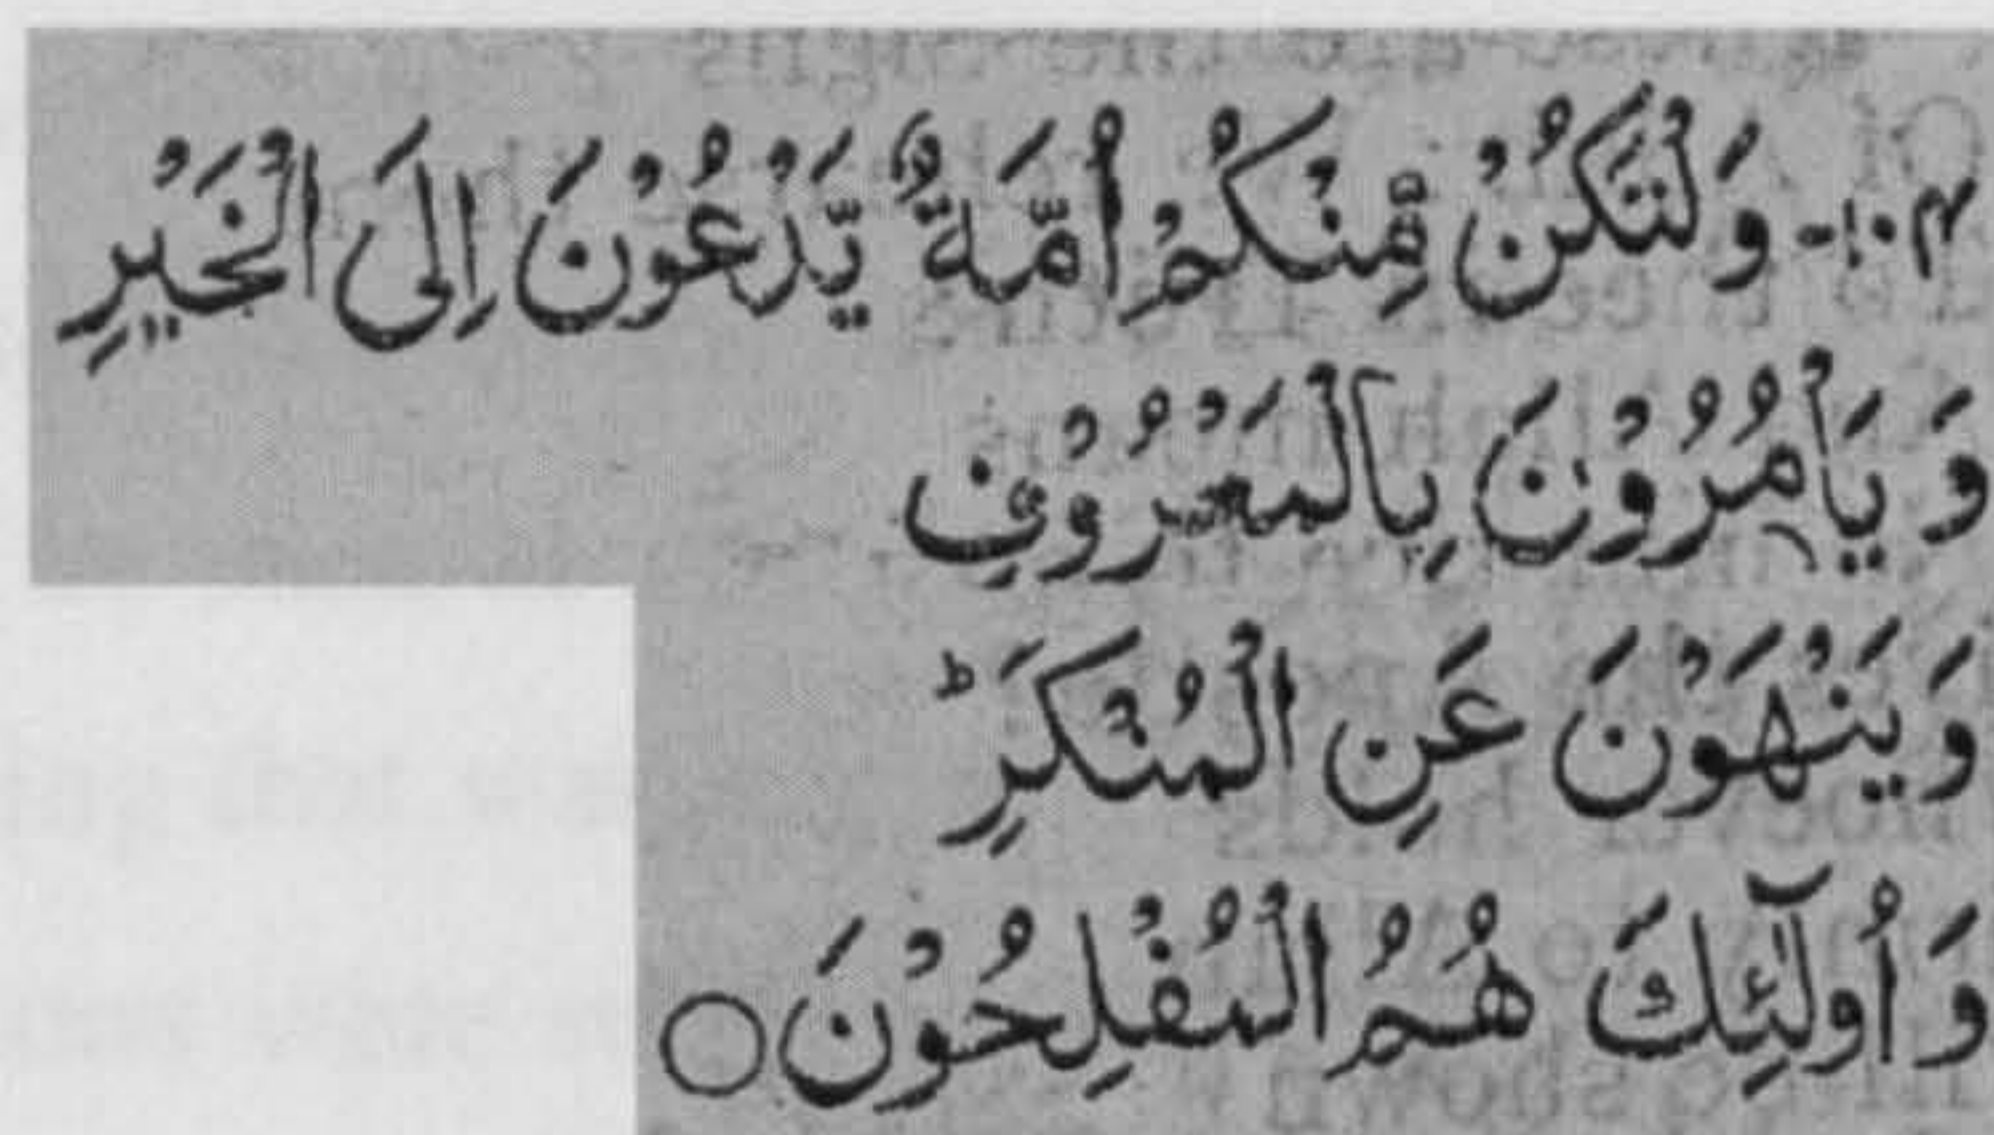 ۱۰۴- وَلْتَكُنْ مِّنْكُمْ اُمَّةٌ يَّدْعُوْنَ اِلَى الْخَيْرِ
وَ يَاْمُرُوْنَ بِالْمَعْرُوْفِ
وَ يَنْهَوْنَ عَنِ الْمُنْكَرِ ؕ
وَ اُولٰٓئِكَ هُمُ الْمُفْلِحُوْنَ ○